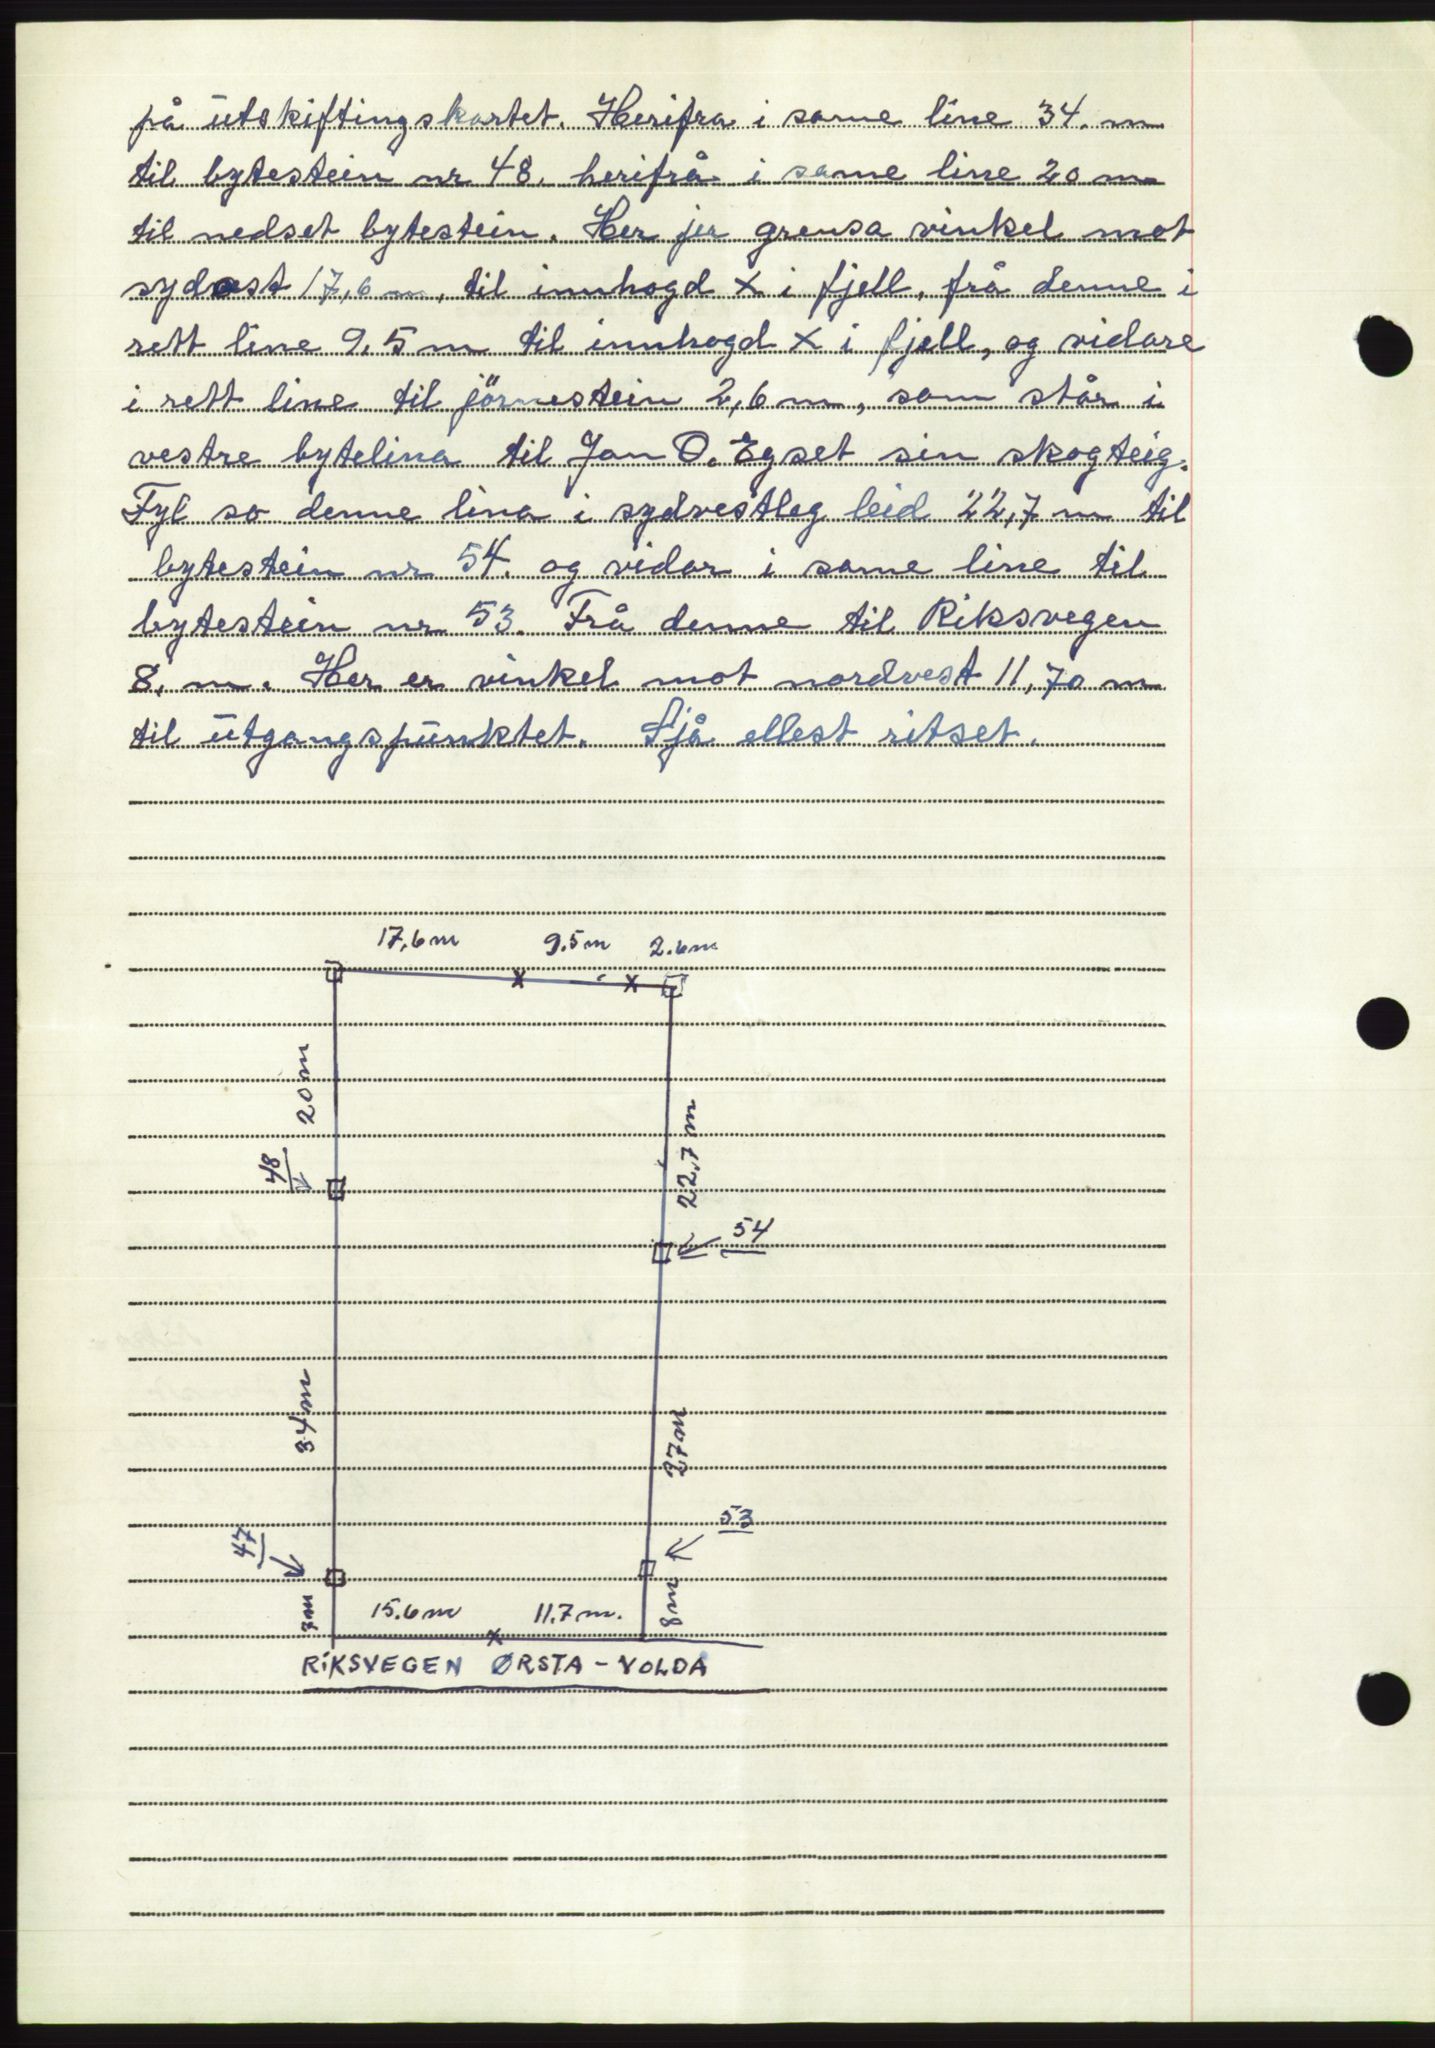 på utskiftingskartet. Herifra i same line 34. m
til bytestein nr 48. herifrå i same line 20 m
til nedset bytestein. Her jer grensa vinkel mot
sydaust 17,6 m, til innhogd X i fjell, frå denne i
rett line 9.5 m til innhogd X i fjell, og vidare
i rett line til jörnestein 2,6 m, som står i
vestre bytelina til Jan O. Egset sin skogteig.
Fyl so denne lina i sydvestleg leid 22,7 m til
bytestein nr 54. og vidar i same line til
bytestein nr 53. Frå denne til Riksvegen
8. m. Her er vinkel mot nordvest 11,70 m
til utgangspunktet. Sjå ellest ritset.
17,6 m 9.5 m 2.6 m
20 m
22,7 m
48
54
34 m
27 m
53
47
7 m 15.6 m 11.7 m. 8 m
RIKSVEGEN ØRSTA - VOLDA